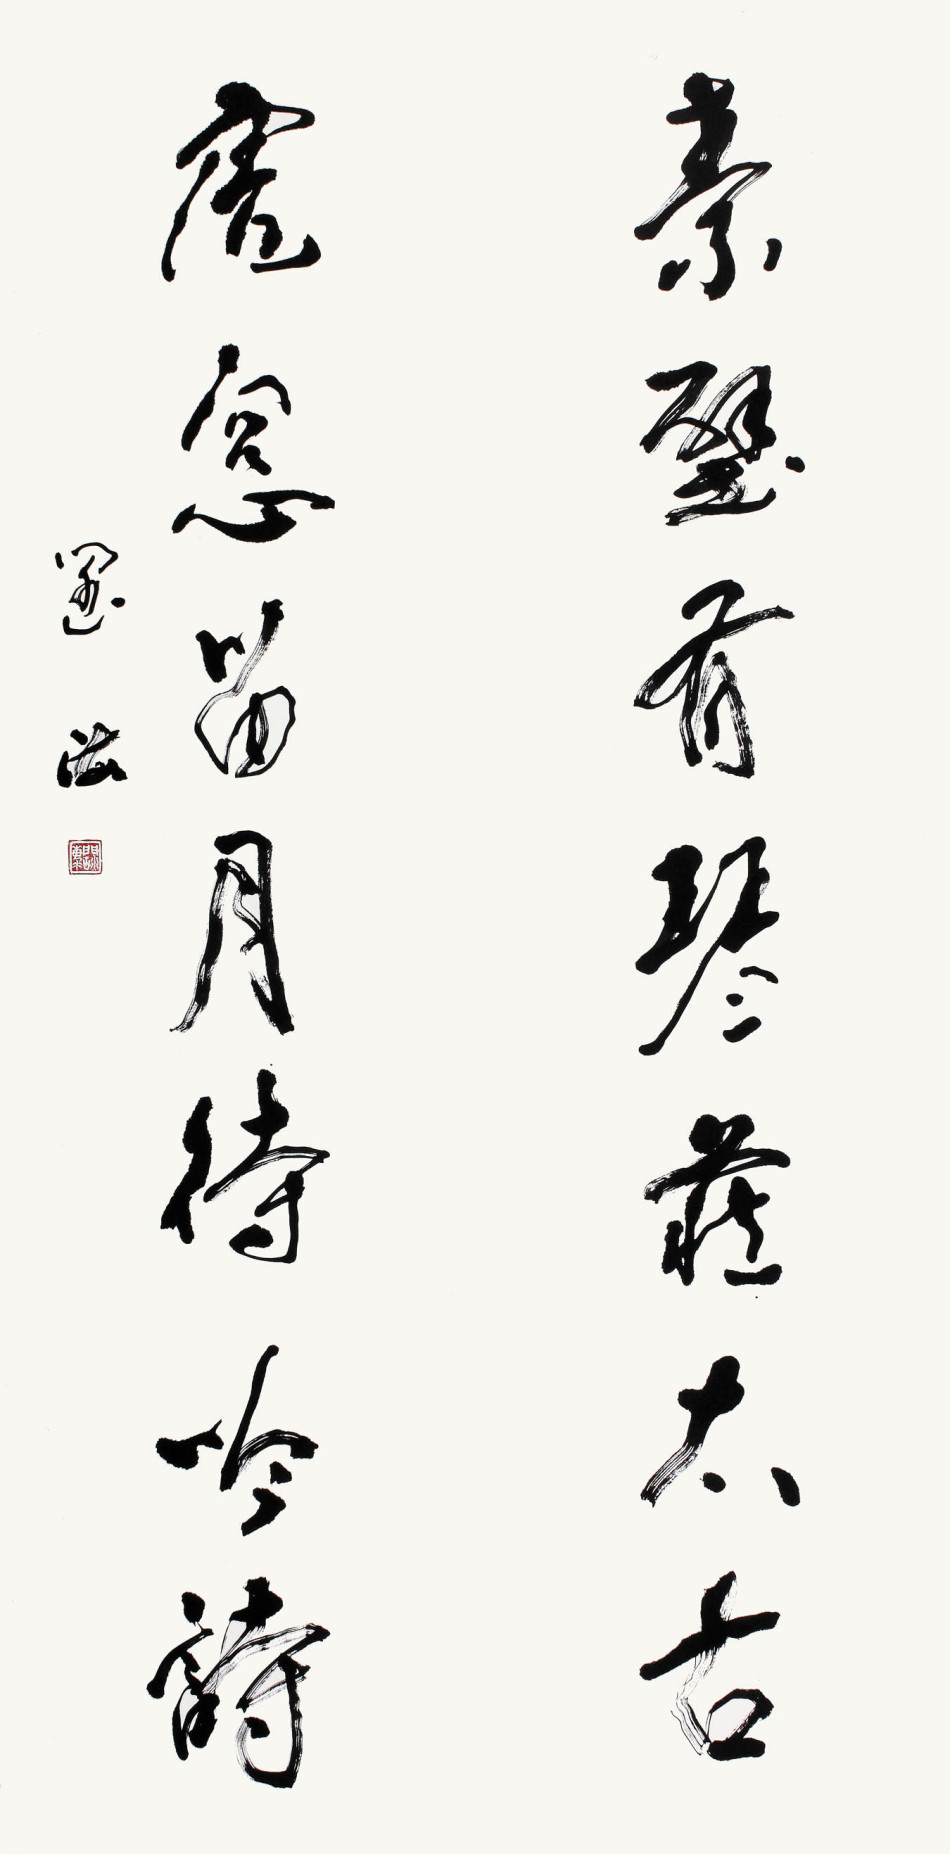 素壁有琴藏太古
虛窗留月待吟詩